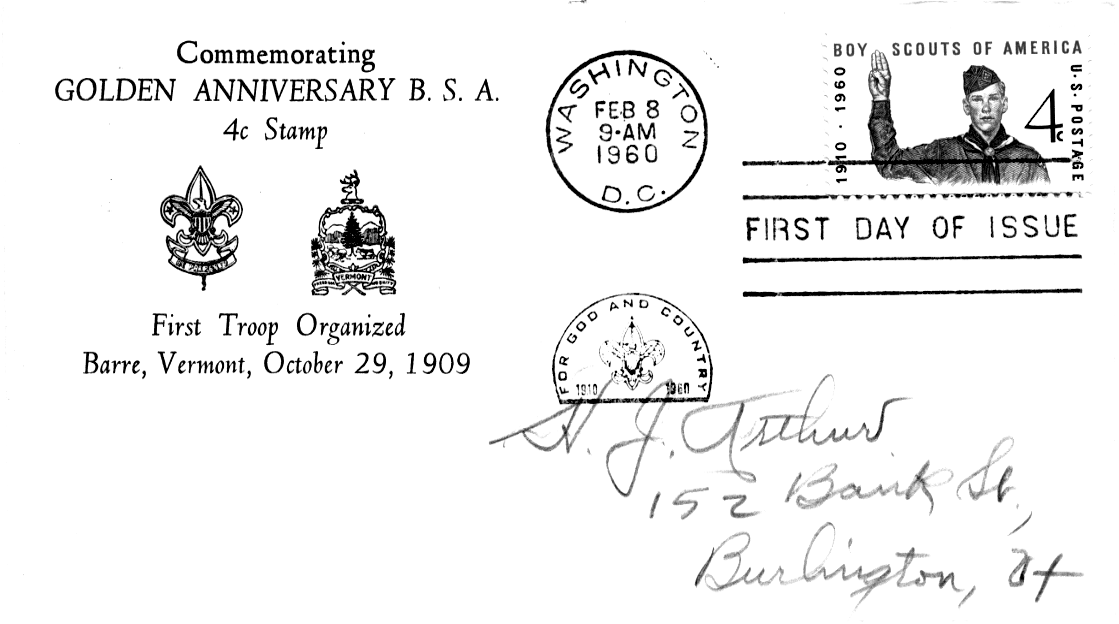 Commemorating
GOLDEN ANNIVERSARY B. S. A.
4c Stamp
VERMONT
First Troop Organized
Barre, Vermont, October 29, 1909
WASHINGTON
FEB 8
9-AM
1960
D.C.
BOY SCOUTS OF AMERICA
1910 · 1960
4c
U·S·POSTAGE
FIRST DAY OF ISSUE
FOR GOD AND COUNTRY
1910 1960
H. J. Arthur
152 Bank St.,
Burlington, Vt